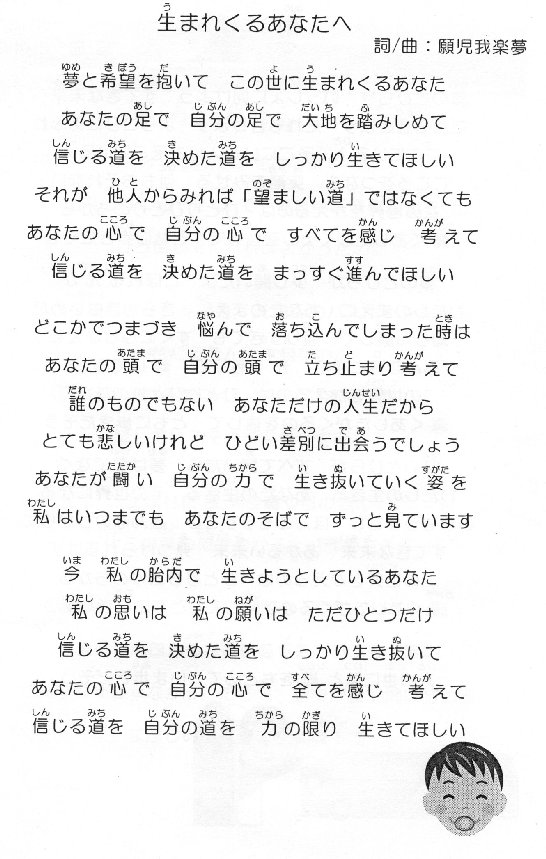 生まれくるあなたへ
詞/曲：願児我楽夢
夢と希望を抱いて この世に生まれくるあなた
あなたの足で 自分の足で 大地を踏みしめて
信じる道を 決めた道を しっかり生きてほしい
それが 他人からみれば「望ましい道」ではなくても
あなたの心で 自分の心で すべてを感じ 考えて
信じる道を 決めた道を まっすぐ進んでほしい
どこかでつまづき 悩んで 落ち込んでしまった時は
あなたの頭で 自分の頭で 立ち止まり考えて
誰のものでもない あなただけの人生だから
とても悲しいけれど ひどい差別に出会うでしょう
あなたが闘い 自分の力で 生き抜いていく姿を
私はいつまでも あなたのそばで ずっと見ています
今 私の胎内で 生きようとしているあなた
私の思いは 私の願いは ただひとつだけ
信じる道を 決めた道を しっかり生き抜いて
あなたの心で 自分の心で 全てを感じ 考えて
信じる道を 自分の道を 力の限り 生きてほしい